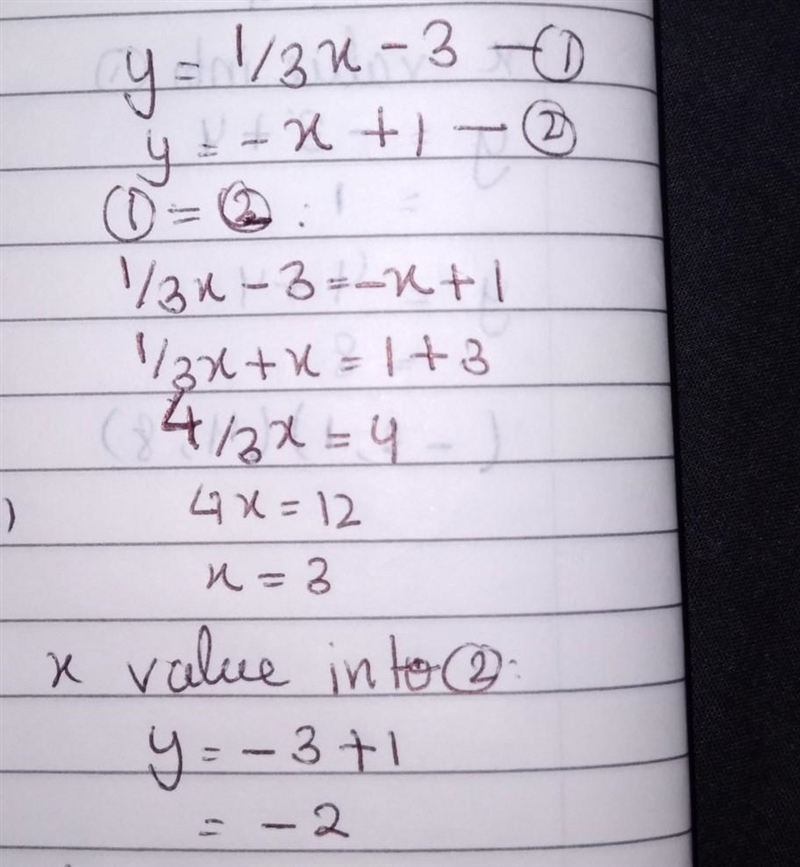 y = 1/3x - 3 - ①
y = -x + 1 - ②
① = ② :
1/3x - 3 = -x + 1
1/3x + x = 1 + 3
4/3x = 4
)
4x = 12
x = 3
x value into ② :
y = -3 + 1
= -2